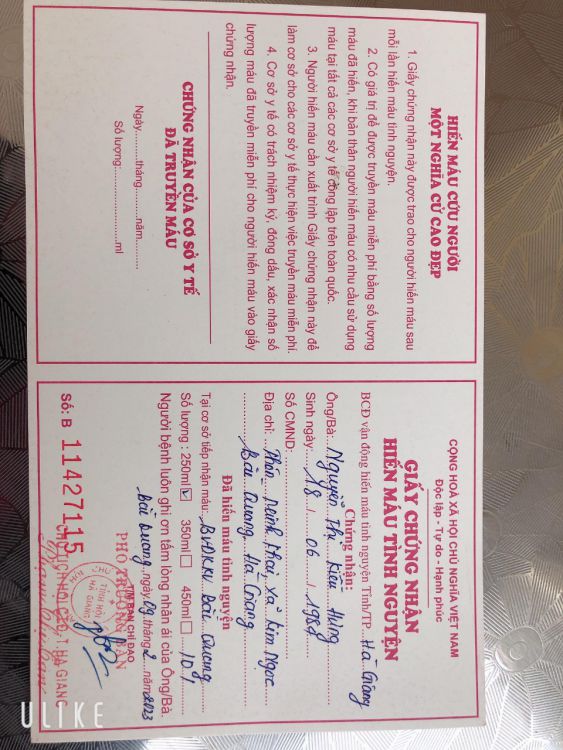 HIẾN MÁU CỨU NGƯỜI
MỘT NGHĨA CỬ CAO ĐẸP
1. Giấy chứng nhận này được trao cho người hiến máu sau
mỗi lần hiến máu tình nguyện.
2. Có giá trị để được truyền máu miễn phí bằng số lượng
máu đã hiến, khi bản thân người hiến máu có nhu cầu sử dụng
máu tại tất cả các cơ sở y tế công lập trên toàn quốc.
3. Người hiến máu cần xuất trình Giấy chứng nhận này để
làm cơ sở cho các cơ sở y tế thực hiện việc truyền máu miễn phí.
4. Cơ sở y tế có trách nhiệm ký, đóng dấu, xác nhận số
lượng máu đã truyền miễn phí cho người hiến máu vào giấy
chứng nhận.
CHỨNG NHẬN CỦA CƠ SỞ Y TẾ
ĐÃ TRUYỀN MÁU
Ngày........tháng........năm........
Số lượng:....................ml
CỘNG HOÀ XÃ HỘI CHỦ NGHĨA VIỆT NAM
Độc lập - Tự do - Hạnh phúc
GIẤY CHỨNG NHẬN
HIẾN MÁU TÌNH NGUYỆN
BCĐ vận động hiến máu tình nguyện Tỉnh/TP...Hà Giang
Chứng nhận:
Ông/Bà: Nguyễn Thị Kiều Hưng
Sinh ngày: 18 / 06 / 1984
Số CMND:
Địa chỉ: Thôn Minh Khai xã Kim Ngọc
Bắc Quang Hà Giang
Đã hiến máu tình nguyện
Tại cơ sở tiếp nhận máu: BVĐKKV Bắc Quang
Số lượng: 250ml 350ml 450ml
Người bệnh luôn ghi ơn tấm lòng nhân ái của Ông/Bà.
Bắc Quang, ngày 09 tháng 2 năm 2023
TM BAN CHỈ ĐẠO
PHÓ TRƯỞNG BAN
CHỦ TỊCH HỘI CTĐ T. HÀ GIANG
Số: B 11427115
ULIKE